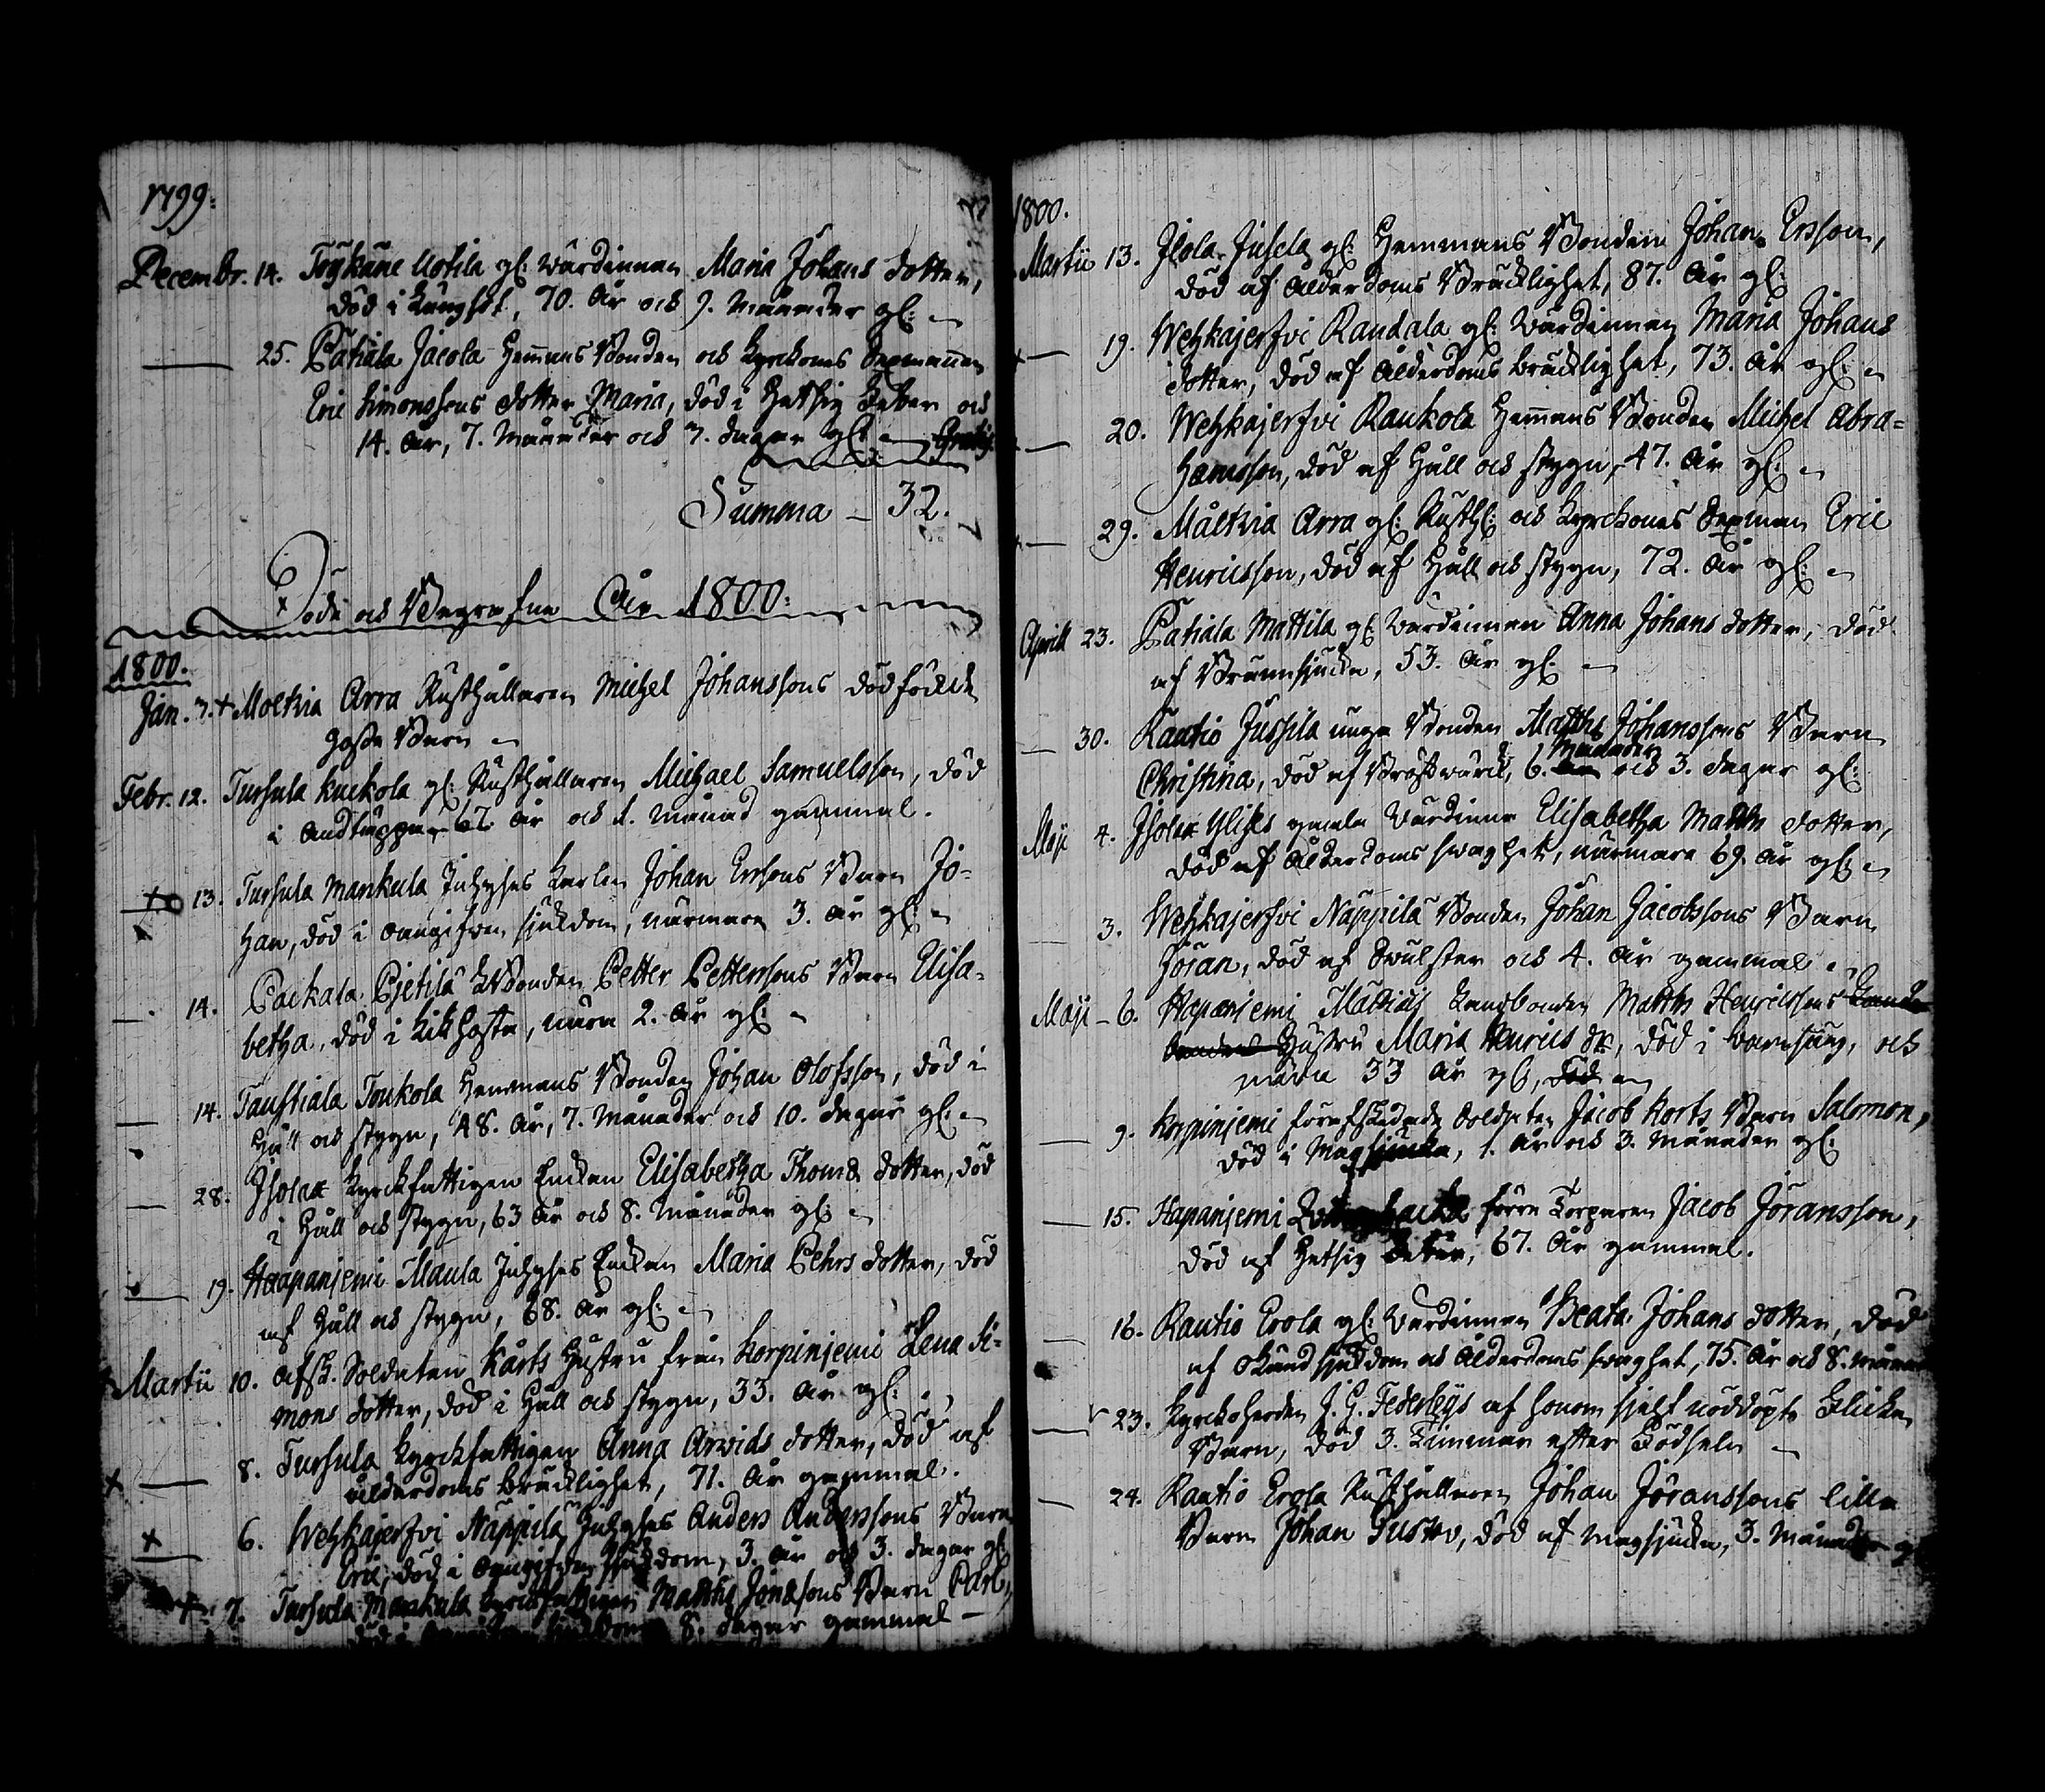 1799.
Decembr. 14. Töykäne Uotila gl: Wärdinnan Maria Johans dotter,
död i Lungsot, 70. År och 9. Månader gl:
25. Patiala Jacola Hemans Bonden och Kyrckones Sexmannen
Eric Simonssons dotter Maria, död i Hetsig Feber och
14. År, 7. Månader och 7. dagar gl:
Summa _ 32.
Döde och Begrafne År 1800.
1800.
Jan. 7. + Moltvia Arra Rusthållaren Michel Johanssons dödfödde
Gosse Barn
Febr. 12. Tursula Kuckola gl: Rusthållaren Michael Samuelsson, död
i Andtäppa 67 År och 1. Månad gammal.
13. Tursula Mankula Inhyses Karlen Johan Erssons Barn Jo-
han, död i oangifven sjukdom, närmare 3. År gl:
14. Packala Pjetilä Bonden Petter Petterssons Barn Elisa-
betha, död i Kikhosta, nära 2. År gl:
14. Taustiala Toukola Hemmans Bonden Johan Olofsson, död i
Håll och stygn, 48. År, 7. Månader och 10. dagar gl:
28. Isolax Kyrckfattigen Enckan Elisabetha Thomæ dotter, död
i Håll och stygn, 63 År och 8. Månader gl:
19. Haapanjemi Maula Inhyses Enckan Maria Pehrs dotter, död
af Håll och stygn, 68. År gl:
Martii 10. afsk. Soldaten Kårts Hustru från Korpinjemi Lena Si-
mons dotter, död i Håll och stygn, 33. År gl:
8. Tursula Kyrckfattigen Anna Arvids dotter, död af
ålderdoms bräcklighet, 71. År gammal.
6. Wehkajerfvi Näppilä Inhyses Anders Anderssons Barn
Eric, död i oangifven sjukdom, 3. År och 3. dagar gl:
7. Tursula Mankula Kyrckfattigen Matths Jönssons Barn Carl,
8. dagar gammal
1800.
Martii 13. Isola Jusela gl: Hemmans Bonden Johan Ersson,
död af Ålderdoms Bräcklighet, 87. År gl:
19. Wehkajerfvi Randala gl: Wärdinnan Maria Johans
dotter, död af Ålderdoms bräcklighet, 73. År gl:
20. Wehkajerfvi Raukola Hemans Bonden Michel Abra-
hamsson, död af Håll och stygn, 47. År gl:
29. Mältvia Arra gl: Rusth: och Kyrckones Sexman Eric
Henricsson, död af Håll och stygn, 72. År gl:
Aprill 23. Patiala Mattila gl: Wärdinnan Anna Johans dotter, död
af Brännsjuka, 53. År gl:
30. Rautio Jussila unga Bonden Matths Johanssons Barn
Månader
Christina, död af Bröstvärck, 6. och 3. dagar gl:
Maji 4. Isolax Ylises gamla Wärdinna Elisabetha Matths dotter,
död af Ålderdoms svaghet, närmare 69. År gl:
3. Wehkajerfvi Näppilä Bonden Johan Jacobssons Barn
Jöran, död af Swulster och 4. År gammal
Maji 6. Hapanjemi Mattias Landbonden Matths Henricssons
Hustru Maria Henrics dr, död i Barnsäng, och
nära 33 År gl,
9. Korpinjemi förafskedade Soldaten Jacob Korts Barn Salomon,
död i Magsjuka, 1. År och 3. Månader gl:
15. Hapanjemi förre Torparen Jacob Jöransson,
död af Hetsig feber, 67. År gammal.
16. Rautio Erola gl: Wärdinnan Beata Johans dotter, död
af okänd sjukdom och Ålderdoms svaghet, 75. År och 8. månad
23. Kyrckoherden J. G. Federleys af honom sjelf nöddöpte Flicke
Barn, död 3. Timmar efter Födseln
24. Rautio Erola Rusthållaren Johan Jöranssons lilla
Barn Johan Gustav, död af Magsjuka, 3. Månader gl